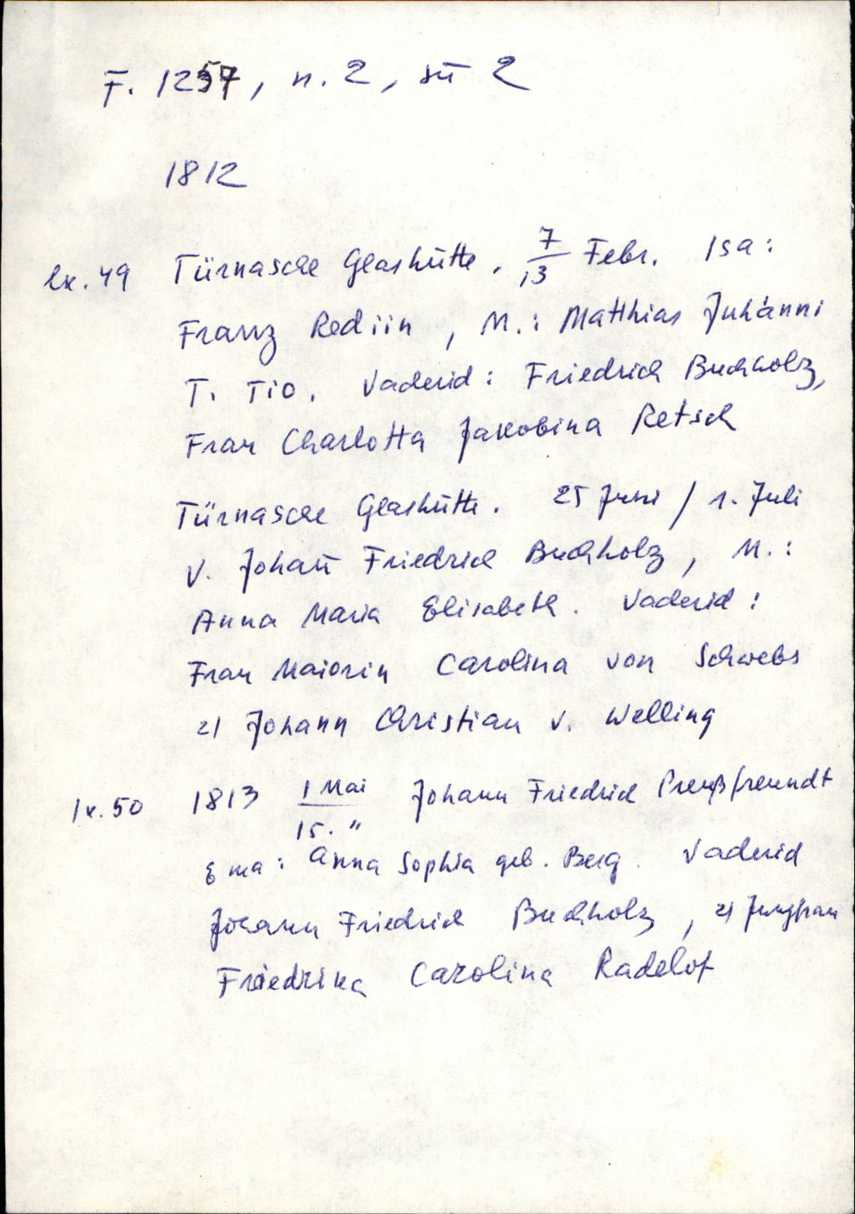 F. 1257, n. 2, sü 2
1812
lk. 49 Türnasche Glashütte. 7/13 Febr. Isa:
Franz Rediin, M.: Matthias Juhánni
T. Tio. Vaderid: Friedrich Buchholz,
Frau Charlotta Jakobina Retsch
Türnasche Glashütte. 25 Juni / 1. Juli
V. Johañ Friedrich Buchholz, M.:
Anna Maria Elisabeth. Vaderid:
Frau Maiorin Carolina von Schwebs
Johann Christian v. Welling
lk. 50 1813 1 Mai / 15. " Johann Friedrich Preußfreundt
Ema: Anna Sophia geb. Berg. Vaderid
Johann Friedrich Buchholz, Jungfrau
Friedrika Carolina Radelof